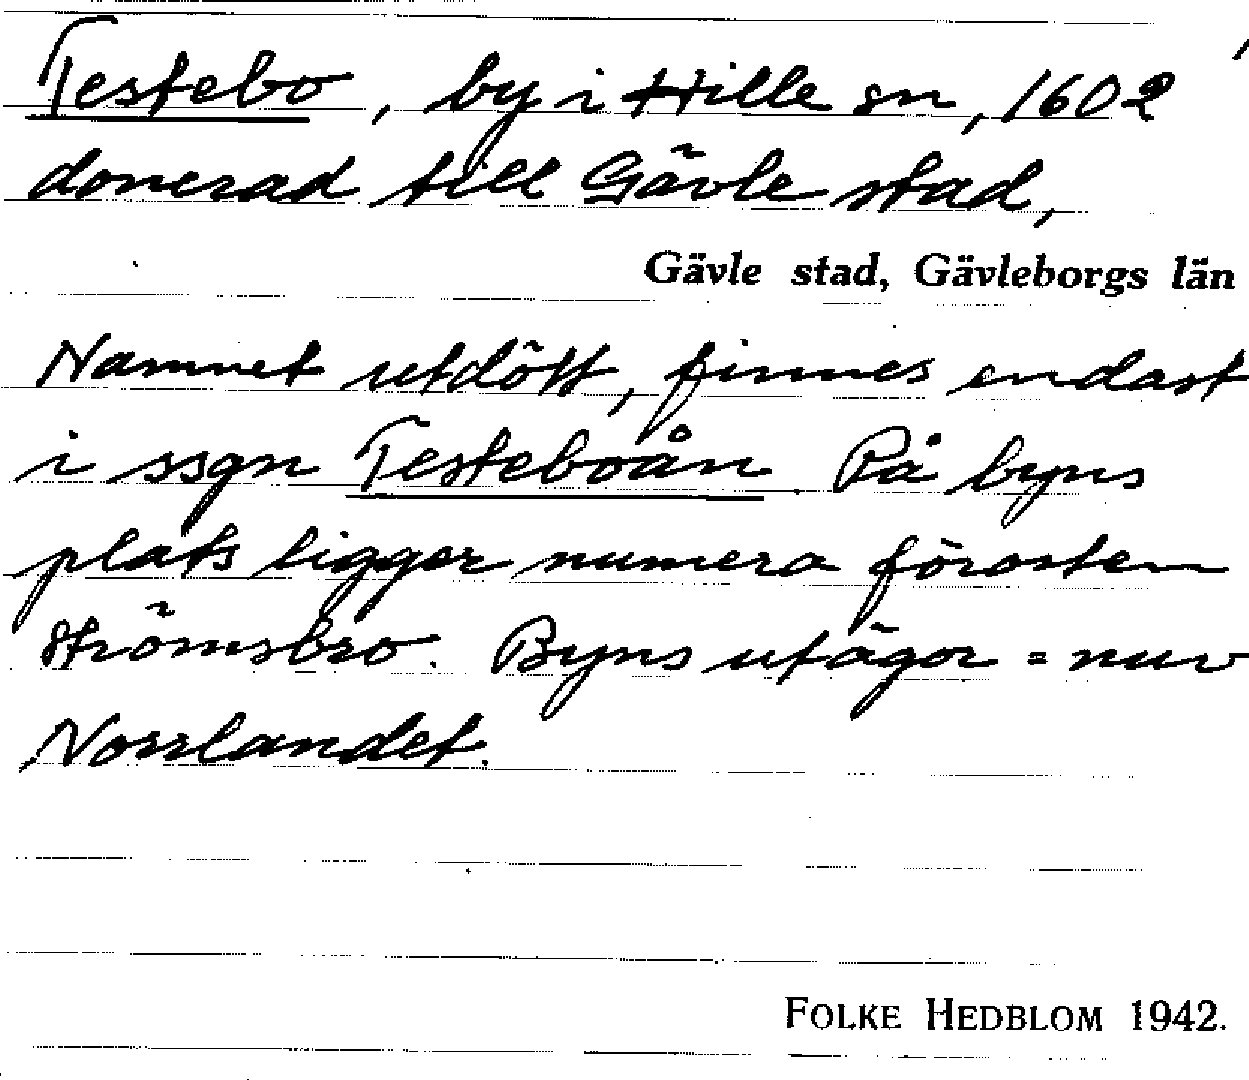 Testebo, by i Hille sn, 1602
donerad till Gävle stad,
Gävle stad, Gävleborgs län
Namnet utdött, finnes endast
i ssgn Testeboån. På byns
plats ligger numera förorten
Strömsbro. Byns utägor = nuv
Norrlandet.
FOLKE HEDBLOM 1942.